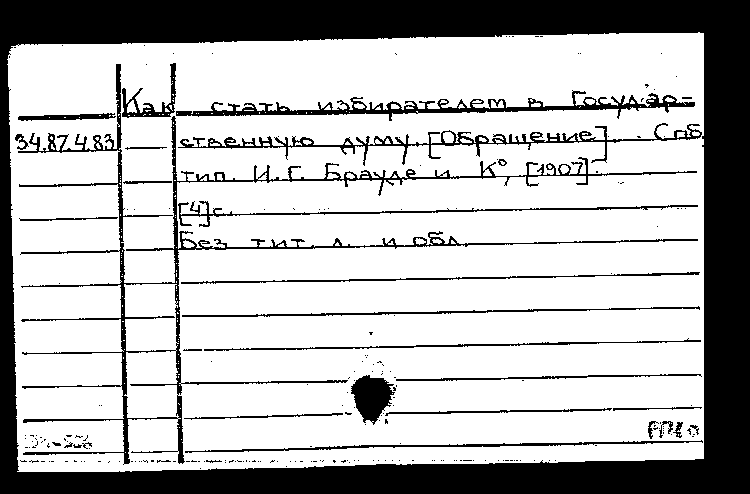 Как стать избирателем в Государ-
34.87.4.83 ственную думу. [Обращение]. Спб,
тип. И.Г. Брауде и К°, [1907].
[4] с.
Без тит. л. и обл.